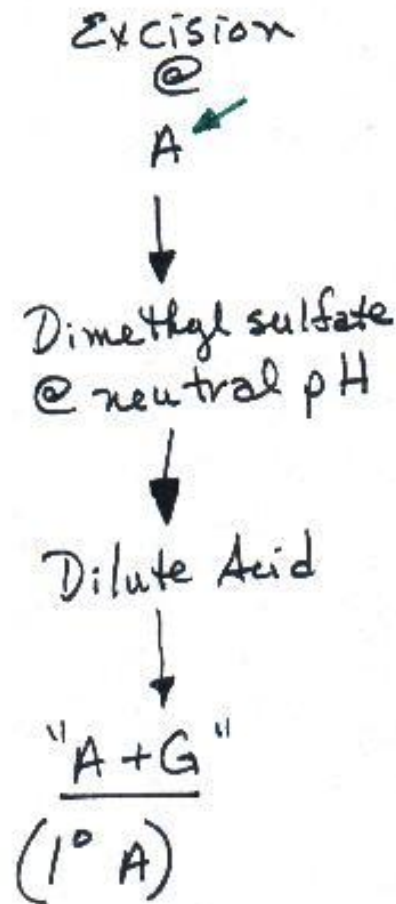 Excision
@
A
Dimethyl sulfate
@ neutral pH
Dilute Acid
"A + G"
(1° A)